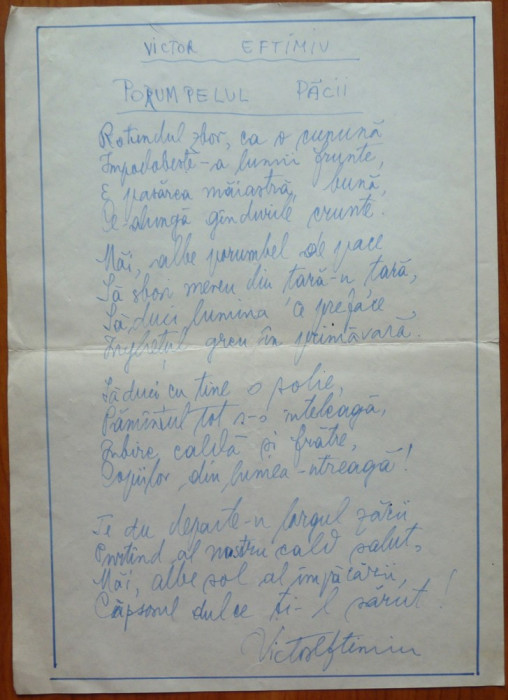 VICTOR EFTIMIU
PORUMPELUL PĂCII
Rotundul zbor, ca o cunună
Împodobește-a lumii frunte,
E pasărea măiastră, bună,
Ce-alungă gîndurile crunte.
Măi, albe porumbel de pace
Să zbori mereu din țară-n țară,
Să duci lumina a preface
Înghețul greu în primăvară.
Să duci cu tine o solie,
Pămîntul tot s-o înteleagă,
Iubire, caldă și frăție,
Copiilor din lumea-ntreagă!
Te du departe-n largul zării
Purtînd al nostru cald salut,
Măi, albe sol al împăcării,
Căpșorul dulce ți-l sărut!
Victor Eftimiu